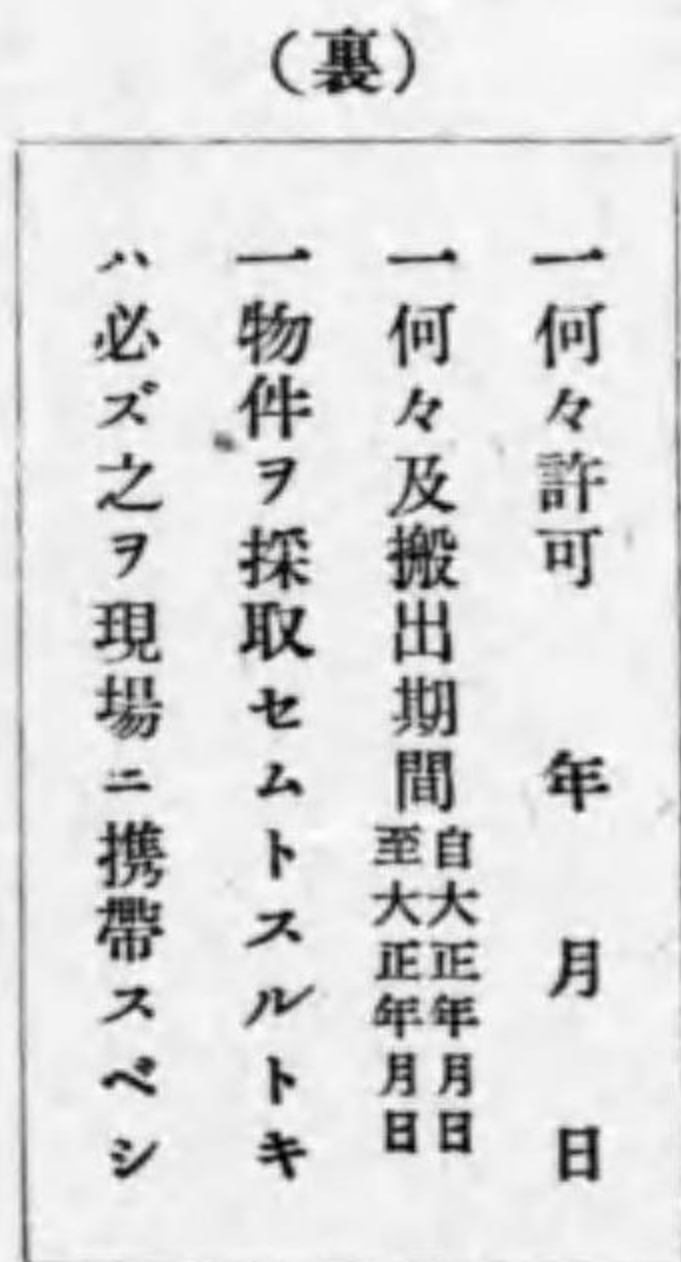 （裏）
一何々許可　　年　月　日
一何々及搬出期間
自大正年月日
至大正年月日
一物件ヲ採取セムトスルトキ
ハ必ズ之ヲ現場ニ携帶スベシ